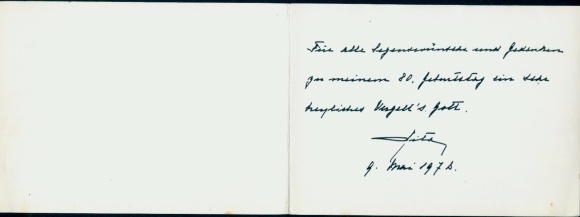 Für alle Segenswünsche und Gedenken
zu meinem 80. Geburtstag ein sehr
herzliches Vergelt's Gott.
Zita
9. Mai 1972.